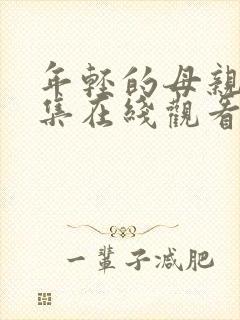 年輕的母親
集在綫觀看
一輩子減肥